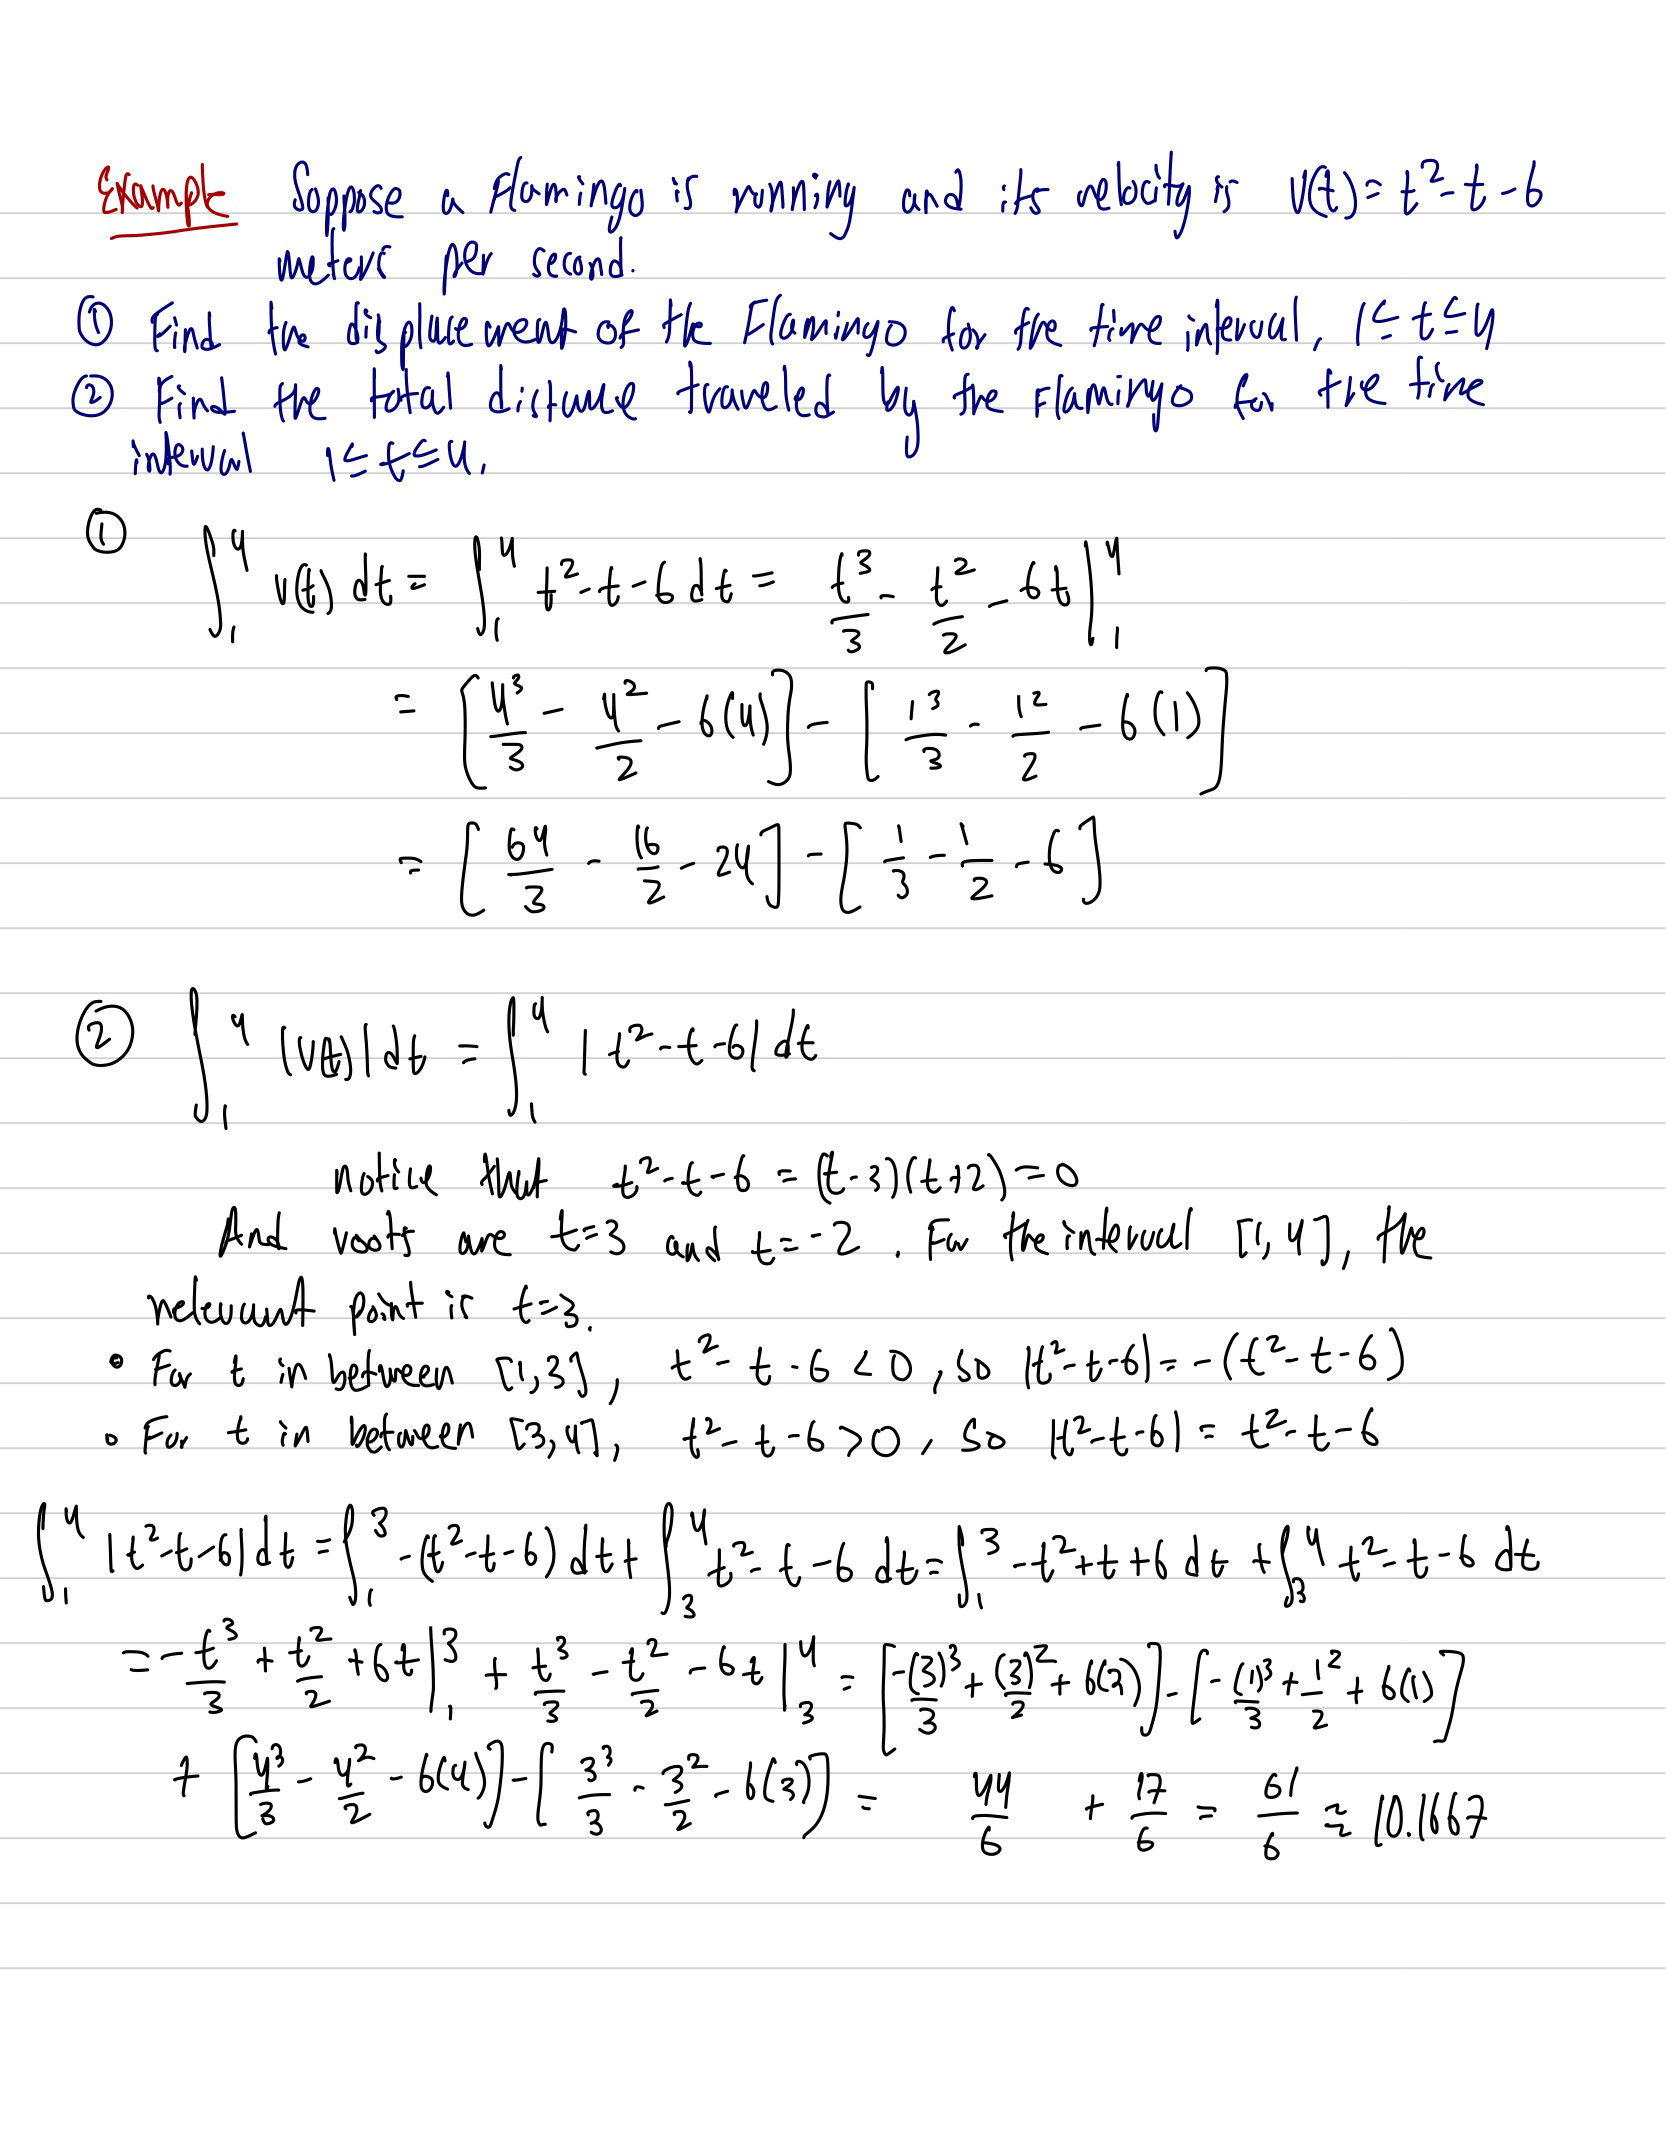 Example Suppose a Flamingo is running and its velocity is v(t) = t² - t - 6
meters per second.
① Find the displacement of the Flamingo for the time interval, 1 ≤ t ≤ 4
② Find the total distance traveled by the Flamingo for the time
interval 1 ≤ t ≤ 4.
① ∫₁⁴ v(t) dt = ∫₁⁴ t² - t - 6 dt = t³/3 - t²/2 - 6t |₁⁴
= [4³/3 - 4²/2 - 6(4)] - [1³/3 - 1²/2 - 6(1)]
= [64/3 - 16/2 - 24] - [1/3 - 1/2 - 6]
② ∫₁⁴ |v(t)| dt = ∫₁⁴ |t² - t - 6| dt
notice that t² - t - 6 = (t-3)(t+2) = 0
And roots are t=3 and t=-2. For the interval [1,4], the
relevant point is t=3.
• For t in between [1,3], t² - t - 6 < 0, so |t² - t - 6| = -(t² - t - 6)
• For t in between [3,4], t² - t - 6 > 0, so |t² - t - 6| = t² - t - 6
∫₁⁴ |t² - t - 6| dt = ∫₁³ -(t² - t - 6) dt + ∫₃⁴ t² - t - 6 dt = ∫₁³ -t² + t + 6 dt + ∫₃⁴ t² - t - 6 dt
= -t³/3 + t²/2 + 6t |₁³ + t³/3 - t²/2 - 6t |₃⁴ = [-(3)³/3 + (3)²/2 + 6(3)] - [-(1)³/3 + 1²/2 + 6(1)]
+ [4³/3 - 4²/2 - 6(4)] - [3³/3 - 3²/2 - 6(3)] = 44/6 + 17/6 = 61/6 ≈ 10.1667